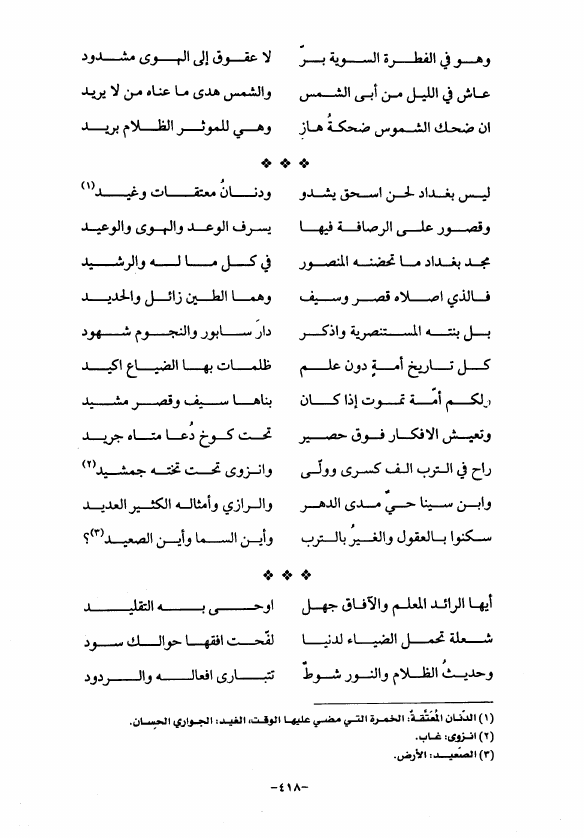 وهو في الفطرة السوية برّ لا عقوق إلى الهوى مشدود
عاش في الليل من أبى الشمس والشمس هدى ما عناه من لا يريد
ان ضحك الشموس ضحكةُ هازٍ وهي للموثر الظلام بريد
❖ ❖ ❖
ليس بغداد لحن اسحق يشدو ودنانُ معتقات وغيد(١)
وقصور على الرصافة فيها يسرف الوعد والهوى والوعيد
مجد بغداد ما تحضنه المنصور في كل ما له والرشيد
فالذي اصلاه قصر وسيف وهما الطين زائل والحديد
بل بنته المستنصرية واذكر دارَ سابور والنجوم شهود
كل تاريخ أمةٍ دون علم ظلمات بها الضياع اكيد
ولكم أمّة تموت إذا كان بناها سيف وقصر مشيد
وتعيش الافكار فوق حصير تحت كوخ دُعا متاه جريد
راح في الترب الف كسرى وولّى وانزوى تحت تخته جمشيد(٢)
وابن سينا حيّ مدى الدهر والرازي وأمثاله الكثير العديد
سكنوا بالعقول والغيرُ بالترب وأين السما وأين الصعيد(٣)؟
❖ ❖ ❖
أيها الرائد المعلم والآفاق جهل اوحى به التقليد
شعلة تحمل الضياء لدنيا لفّحت افقها حوالك سود
وحديثُ الظلام والنور شوطٌ تتبارى افعاله والردود
(١) الدّنان المُعَتَّقةُ: الخمرة التي مضي عليها الوقت، الغيد: الجواري الحِسان.
(٢) انزوى: غاب.
(٣) الصّعيد: الأرض.
-٤١٨-